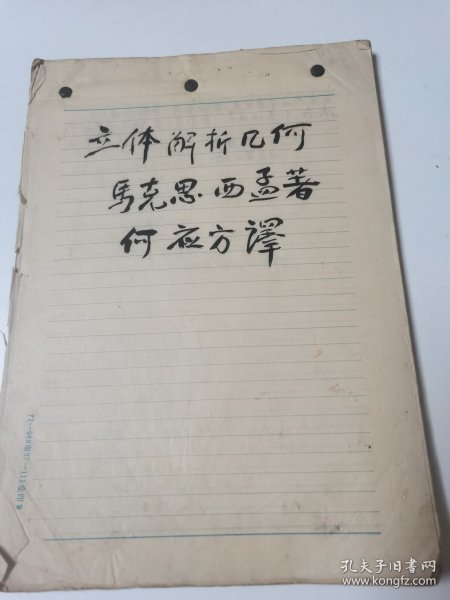 立体解析几何
馬克思西孟著
何应方譯
孔夫子旧书网
www.kongfz.com